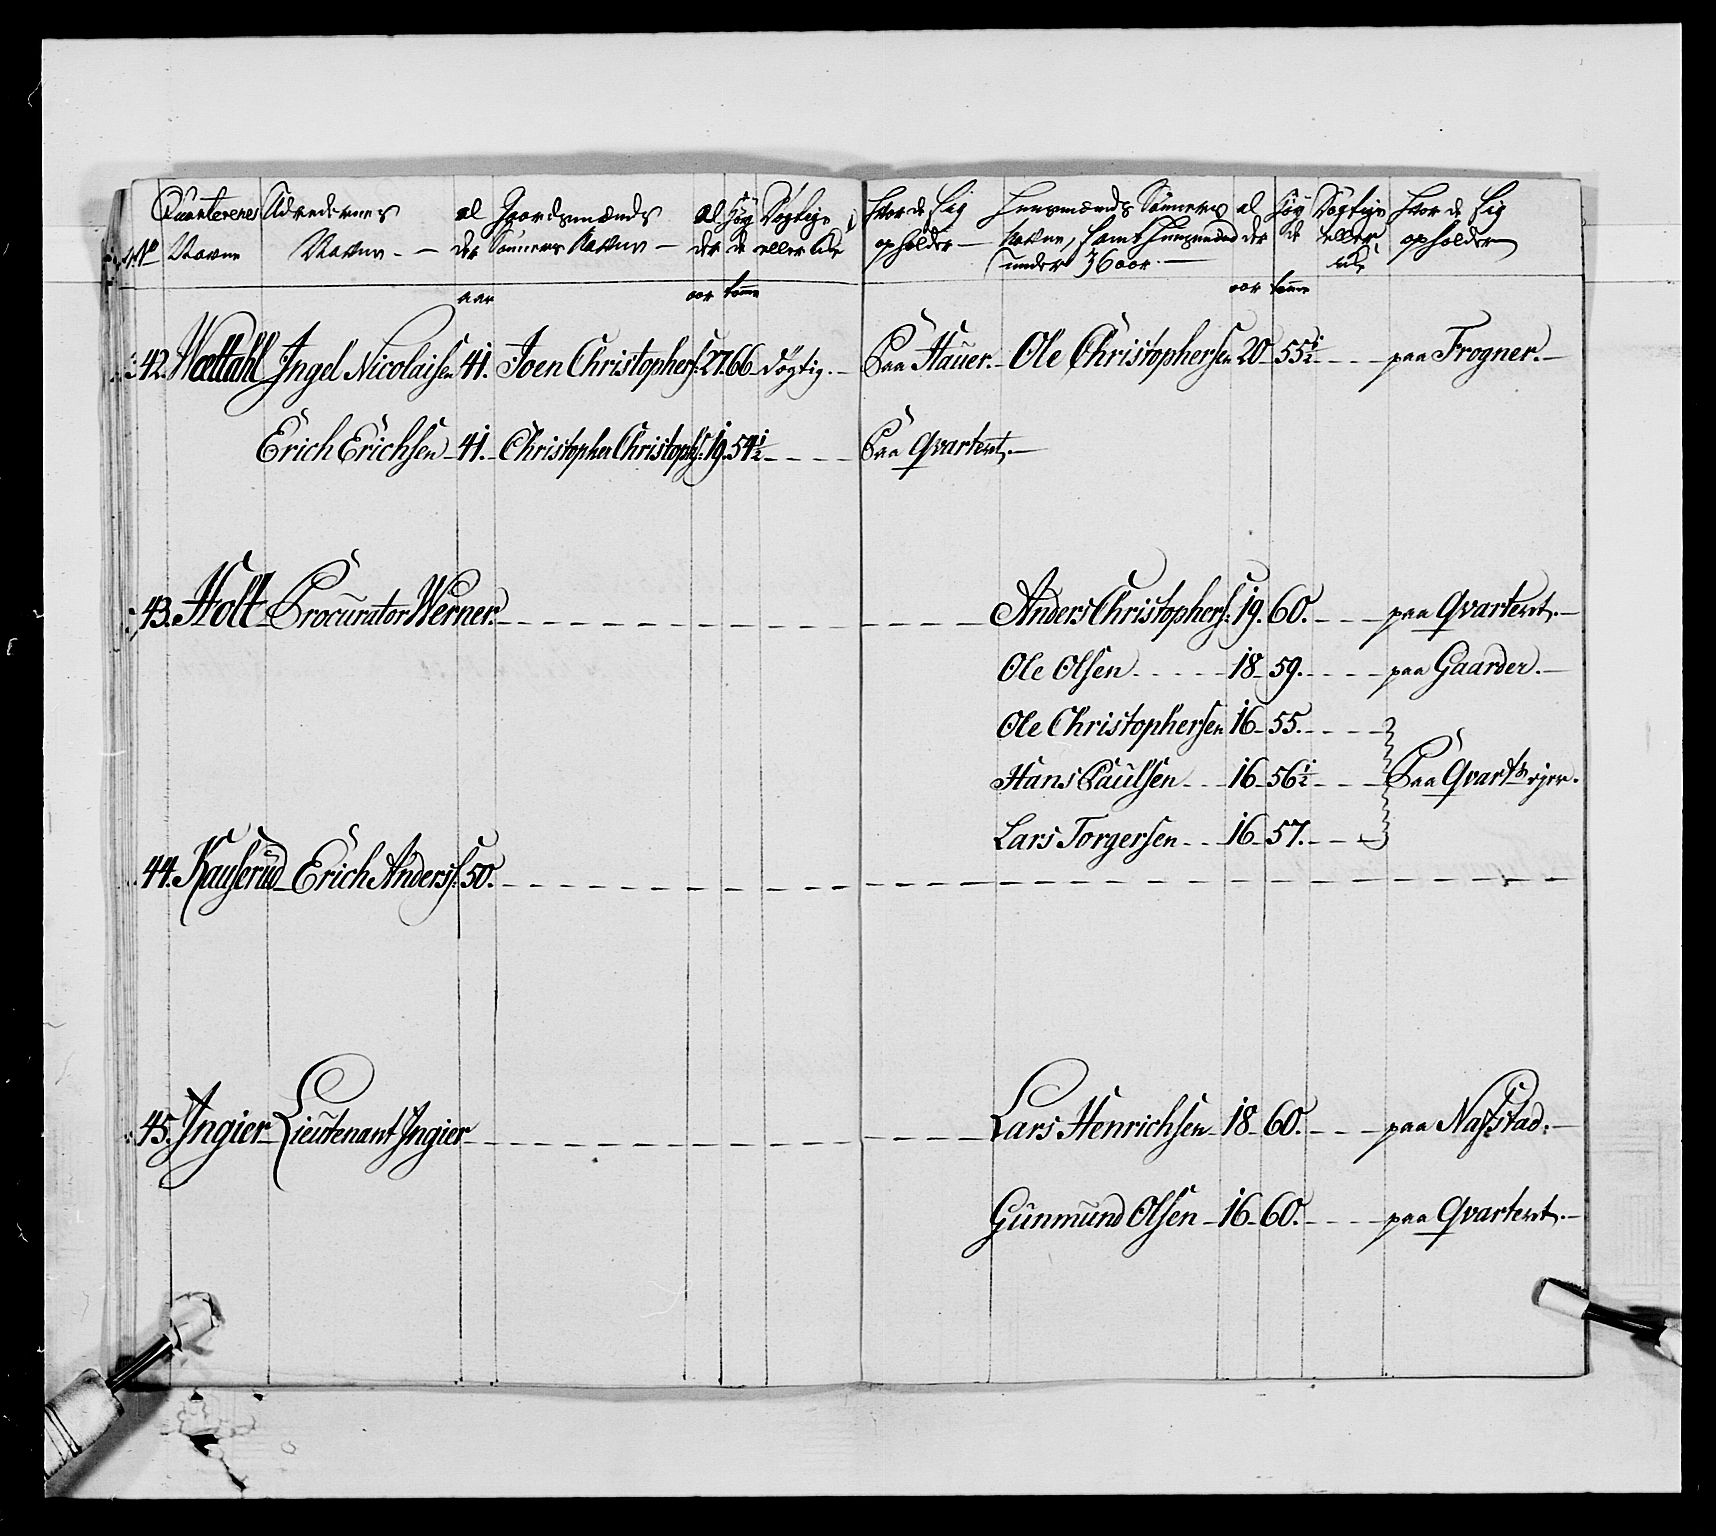 No Qvarterenes Navne Aadredernes Navne al der Gaardmænds Sønners Navne al der Høy de Dögtige eller ike Hvor de sig opholder Huusmænds Sønners Navne, samt Huusmænd under 36 aar al der Høy de Dögtige eller ike Hvor de sig opholder
aar aar tomme aar tomme
42. Wættahl Ingel Nicolaisen 41. Joen Christophers: 27. 66 Dögtig. Paa Hauer. Ole Christophersen 20 55½ paa Frogner.
Erich Erichsen 41. Christopher Christophs: 19. 54½ Paa Qvarteret.
43. Holt Procurator Werner. Anders Christophers: 19. 60. paa Qvarteret.
Ole Olsen 18 59. paa Gaarder.
Ole Christophersen 16 55.
Hans Paulsen 16 56½ Paa Qvart
Lars Torgersen 16 57.
44. Kauserud Erich Anderss: 50.
45. Ingier Lieutenant Ingier Lars Henrichsen 18 60. paa Nafstad.
Gunmund Olsen 16 60. paa Qvarteret.